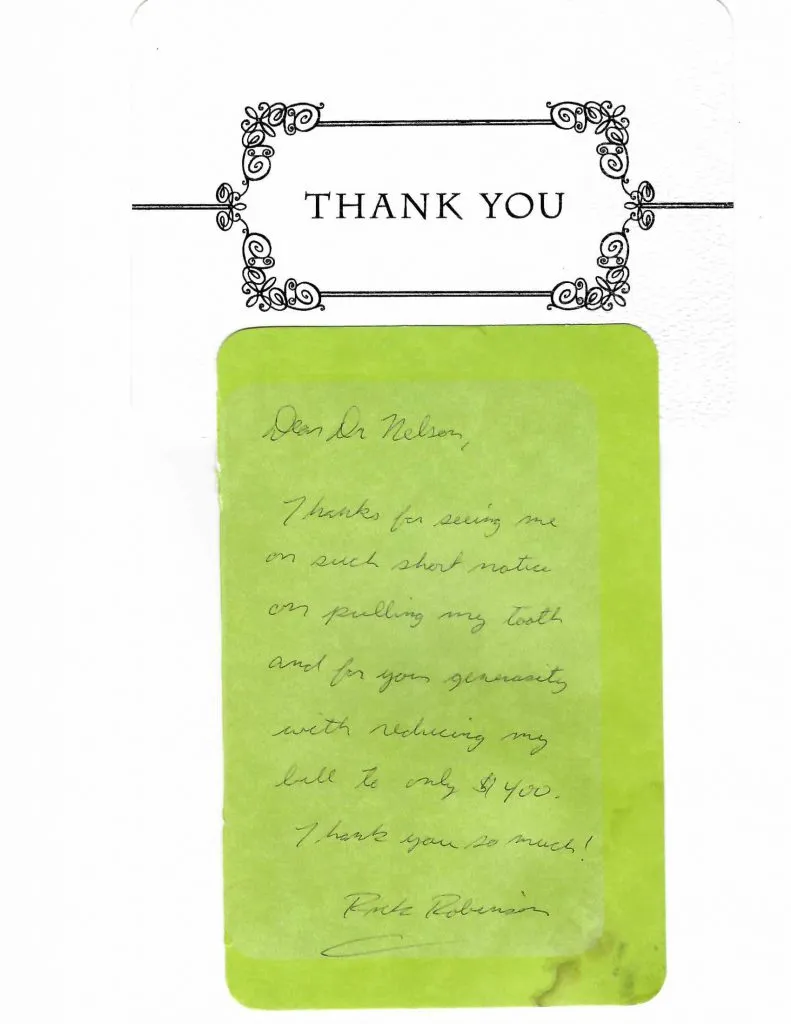 THANK YOU
Dear Dr Nelson,
Thanks for seeing me
on such short notice
on pulling my tooth
and for your generosity
with reducing my
bill to only $400.
Thank you so much!
Rick Robinson